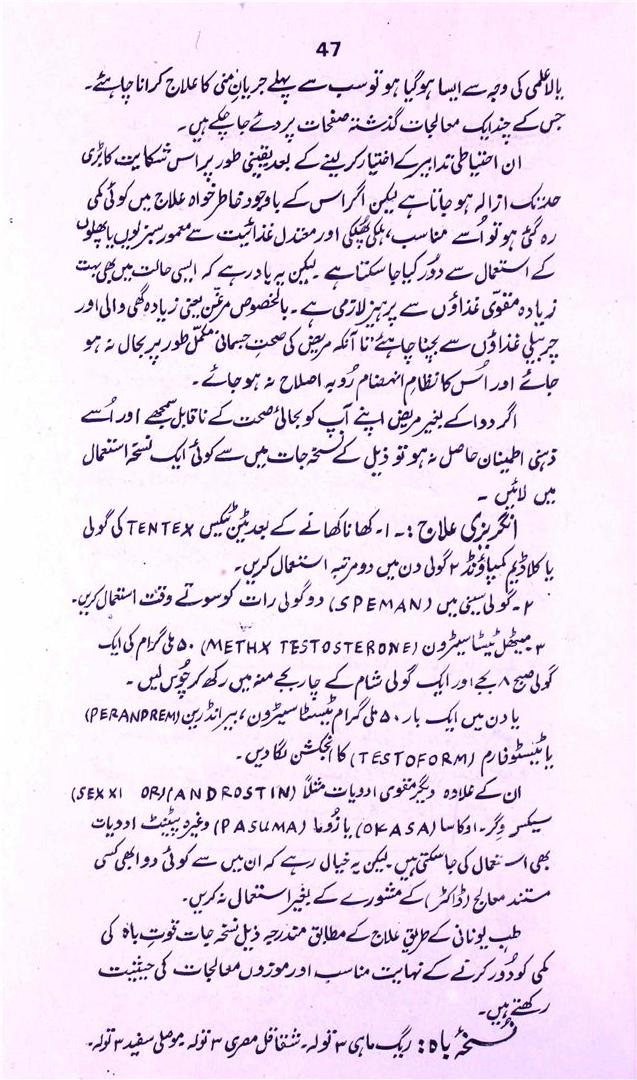 47
یا لاعلمی کی وجہ سے ایسا ہوگیا ہو تو سب سے پہلے جریانِ منی کا علاج کرانا چاہئے۔
جس کے چند ایک معالجات گذشتہ صفحات پر دئے جاچکے ہیں۔
ان احتیاطی تدابیر کے اختیار کر لینے کے بعد یقینی طور پر اس شکایت کا بڑی
حد تک ازالہ ہو جاتا ہے لیکن اگر اس کے باوجود خاطر خواہ علاج میں کوئی کمی
رہ گئی ہو تو اُسے مناسب، ہلکی پھلکی اور معتدل غذائیت سے معمور سبزیوں یا پھلوں
کے استعمال سے دُور کیا جا سکتا ہے لیکن یہ یاد رہے کہ ایسی حالت میں بھی بہت
زیادہ مقوّی غذاؤں سے پرہیز لازمی ہے۔ بالخصوص مرغن یعنی زیادہ گھی والی اور
چربیلی غذاؤں سے بچنا چاہئے تا آنکہ مریض کی صحتِ جسمانی مکمّل طور پر بحال نہ ہو
جائے اور اُس کا نظامِ انہضام رُوبہ اصلاح نہ ہو جائے۔
اگر دوا کے بغیر مریض اپنے آپ کو بحالیٔ صحت کے ناقابل سمجھے اور اُسے
ذہنی اطمینان حاصل نہ ہو تو ذیل کے نسخہ جات میں سے کوئی ایک نسخہ استعمال
میں لائیں ۔
انگریزی علاج :۔ ۱۔ کھانا کھانے کے بعد ٹین ٹیکس TENTEX کی گولی
یا کلاڈیم کمپاؤنڈ ۲ گولی دن میں دو مرتبہ استعمال کریں۔
۲۔ گولی سپی مین (SPEMAN) دو گولی رات کو سوتے وقت استعمال کریں۔
۳۔ میتھل ٹیسٹا سیٹرون (METHX TESTOSTERONE) ۵۰ ملی گرام کی ایک
گولی صبح ۸ بجے اور ایک گولی شام کے چار بجے منہ میں رکھ کر چُوس لیں ۔
یا دن میں ایک بار ۵۰ ملی گرام ٹیسٹا سیٹرون، پیرانڈرین (PERANDREM)
یا ٹیسٹو فارم (TESTOFORM) کا انجکشن لگا دیں۔
ان کے علاوہ دیگر مقوی ادویات مثلاً (SEXXI OR)(ANDROSTIN)
سیکس وگر۔ اوکاسا (OKASA) یا زُوما (PASUMA) وغیرہ پیٹنٹ ادویات
بھی استعمال کی جا سکتی ہیں لیکن یہ خیال رہے کہ ان میں سے کوئی دوا بھی کسی
مستند معالج (ڈاکٹر) کے مشورے کے بغیر استعمال نہ کریں۔
طب یونانی کے طریقِ علاج کے مطابق مندرجہ ذیل نسخہ جات قوتِ باہ کی
کمی کو دُور کرنے کے نہایت مناسب اور موزوں معالجات کی حیثیت
رکھتے ہیں۔
نسخۂ باہ: ریگ ماہی ۳ تولہ۔ شقاقل مصری ۳ تولہ موصلی سفید ۳ تولہ۔